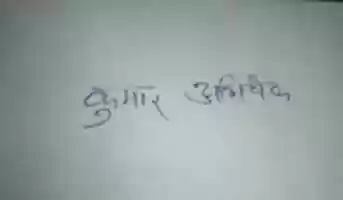 कुमार अभिषेक